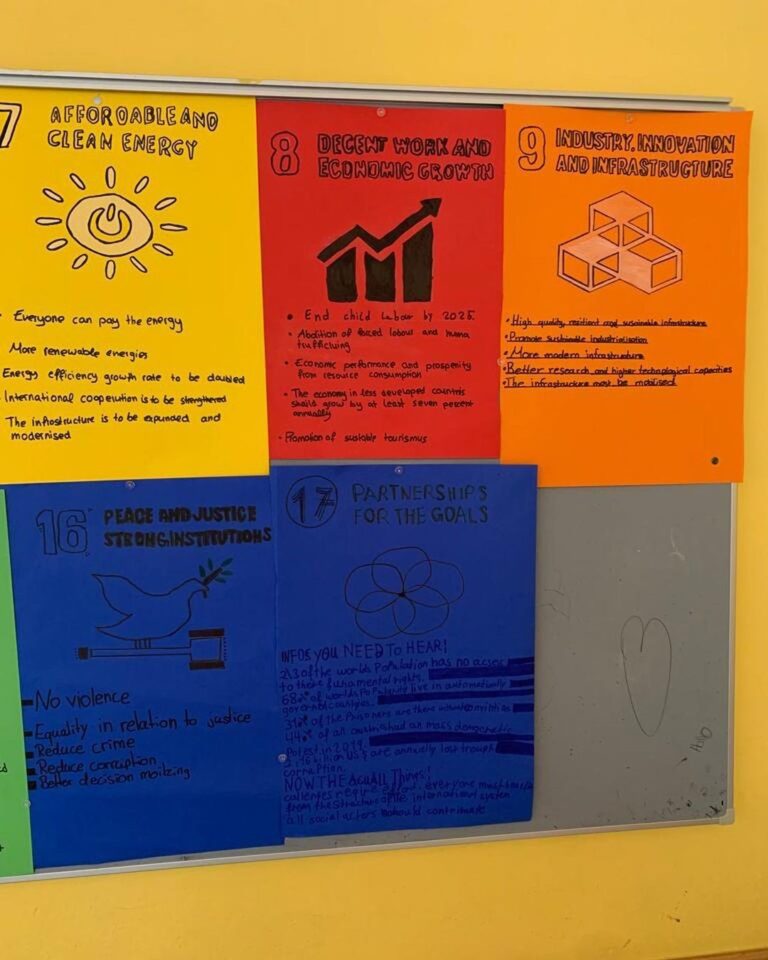 7 AFFORDABLE AND
CLEAN ENERGY
Everyone can pay the energy
More renewable energies
Energy efficiency growth rate to be doubled
International cooperation is to be strengthered
The infrastructure is to be expanded and
modernised
8 DECENT WORK AND
ECONOMIC GROWTH
• End child Labour by 2025
• Abolition of forced labour and human
trafficiung
• Economic performance and prosperity
from resource consumption
• The economy in less developed countris
should grow by at least seven percent
annually
• Promotion of sustable tourismus
9 INDUSTRY, INNOVATION
AND INFRASTRUCTURE
• High quality, resilient and sustainable infrastructure
• Promote sustainable industrialisation
• More modern infrastructure
• Better research and higher technological capacities
• The infrastructure must be mobilised
16 PEACE AND JUSTICE
STRONG INSTITUTIONS
No violence
Equality in relation to justice
Reduce crime
Reduce corruption
Better decision
17 PARTNERSHIPS
FOR THE GOALS
INFOS YOU NEED TO HEAR!
of the worlds Population has no
to there rights.
68% of worlds live in
countries.
of the Prisoners are there
44% of all an mass
in 2019.
are annually lost
corruption.
NOW THE Things!
require effort, everyone must
from the structure of the international system
all social should contribute